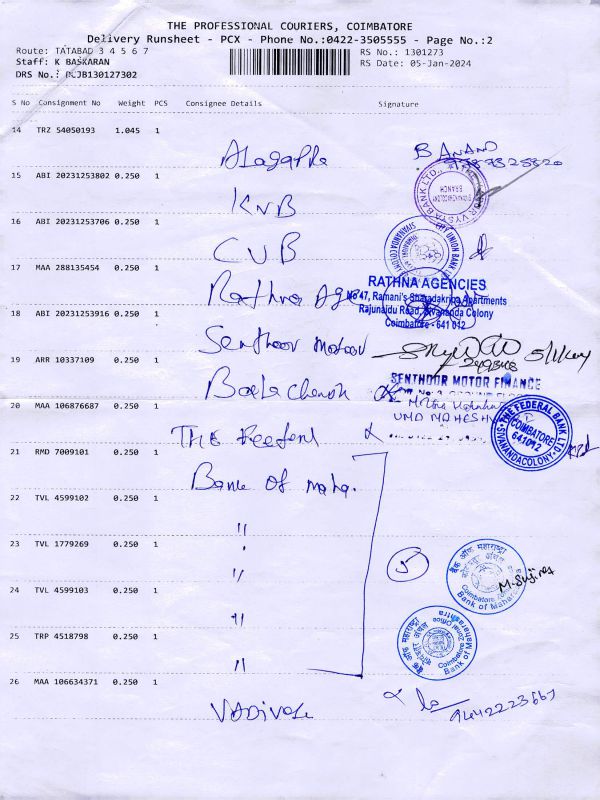 THE PROFESSIONAL COURIERS, COIMBATORE
Delivery Runsheet - PCX - Phone No.:0422-3505555 - Page No.:2
Route: TATABAD 3 4 5 6 7 RS No.: 1301273
Staff: K BASKARAN RS Date: 05-Jan-2024
DRS No.: PCJB130127302
S No Consignment No Weight PCS Consignee Details Signature
14 TRZ 54050193 1.045 1
B ANAND
15 ABI 20231253802 0.250 1
KVB
16 ABI 20231253706 0.250 1
CUB
17 MAA 288135454 0.250 1
Rathna Age
RATHNA AGENCIES
No 47, Ramani's Sharadakripa Apartments
Rajunaidu Road, Sivananda Colony
Coimbatore - 641 012
18 ABI 20231253916 0.250 1
Senthoor motoor
5/1/24
SENTHOOR MOTOR FINANCE
19 ARR 10337109 0.250 1
20 MAA 106876687 0.250 1
THE Federal
THE FEDERAL BANK LTD
COIMBATORE
641012
SIVANANDACOLONY
21 RMD 7009101 0.250 1
Bank of maha.
22 TVL 4599102 0.250 1
"
23 TVL 1779269 0.250 1
"
5
बैंक ऑफ महाराष्ट्र
Bank of Maharashtra
24 TVL 4599103 0.250 1
"
25 TRP 4518798 0.250 1
"
बैंक ऑफ महाराष्ट्र
Coimbatore Zonal Office
Bank of Maharashtra
26 MAA 106634371 0.250 1
9442223667